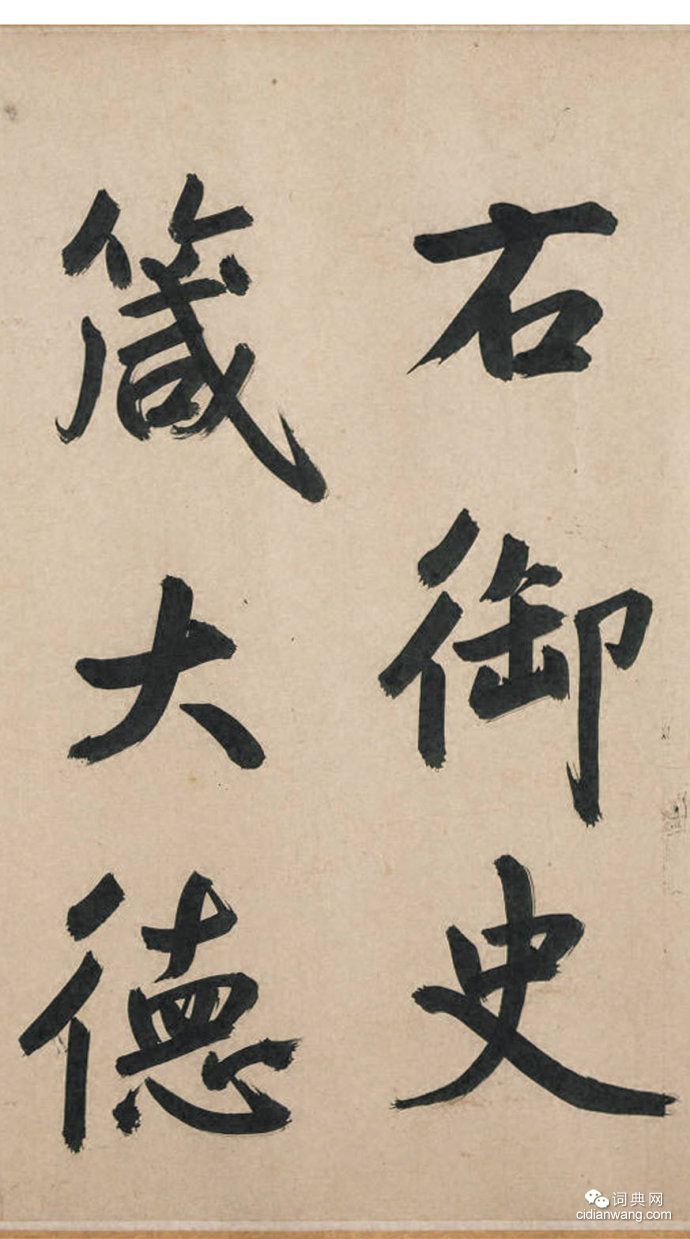 右御史
箴大德
词典网
cidianwang.com